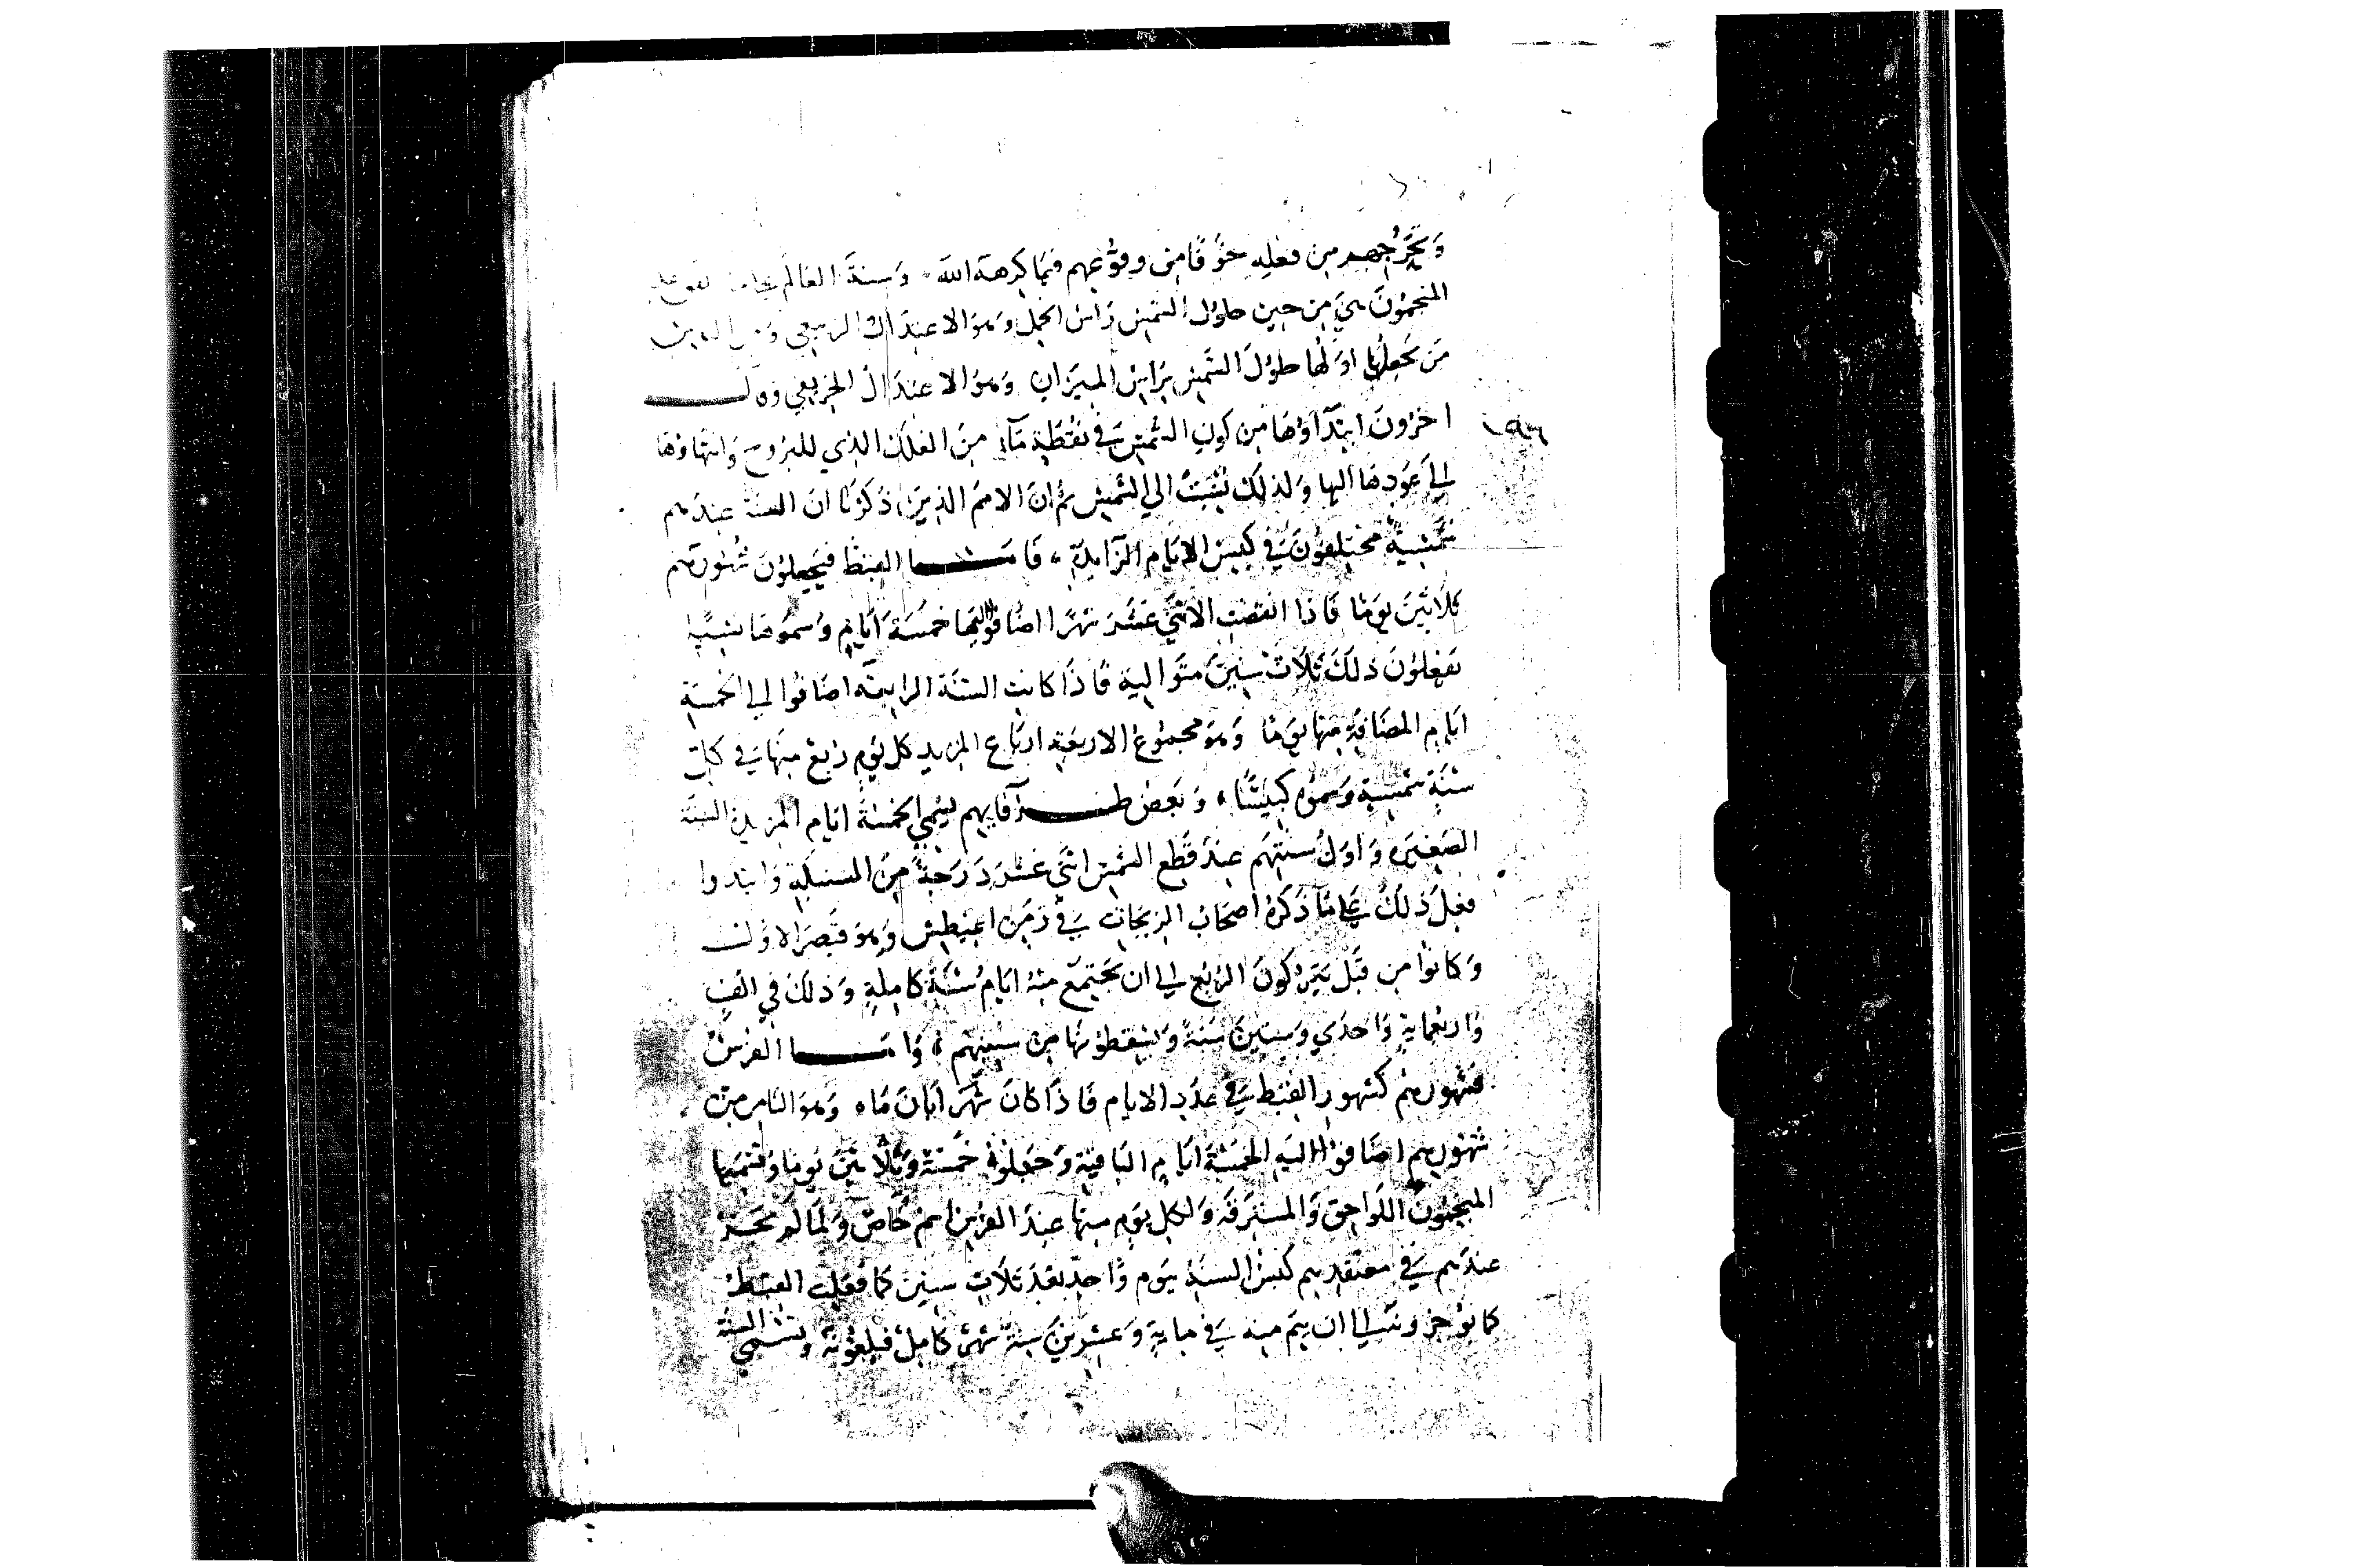 وَتحَرُّجُهم مِن فعله خَوفًا مِن وقوُعهم فيمَا كرهَه اللهَ وَسنةَ العَالم
المنجموُنَ هيَ مِن حين حلوُل الشمس رَاس الحمل وَهوَ الاعتدَال الربيعي وَمن
مَن يجَعلهَا اوَلها حلوُلَ الشمس برَاسِ الميزَان وَهوَ الاعتدَال الخريفي وَقال
اخرُونَ ابتدَآوُهَا مِن كون الشمس في نقُطَة مَآ مِنَ الفلَك الذي للبرُوج وَانتهاوهَا
الي عَودهَا اليها وَلذلك نُسبَت الي الشمس ثم انَ الاممَ الذينَ ذكرنَا ان السنة عندهم
شمسية مختلفوُنَ في كبس الايَام الزآيدة ، فَامَّا القبط فيجعلوُنَ شهُورهم
ثلاثينَ يوَمًا فَاذا انقضت الاثني عَشَرَ شهرًا اضَافوُا اليها خمسَة ايَام وَسموُهَا نسيًا
يفعلوُنَ ذلكَ ثلاثَ سنينَ متَواليَة فَاذَا كانت السَنة الرابعَة اضَافوا الي الخمسَة
ايَام المضَافَة منها يوَمًا وَهوَ مجموُع الاربَعَة اربَاع المزيد كل يوم رُبع منهَا في كل
سَنَة شمسيَة وَسموُه كبيسًا ، وَبعضُ طرآفايهم يسمي الخمسَة ايَام المزيدة السَنَة
الصَغيَره وَاوَلُ سنتهَم عندَ قطع الشمس اثني عَشَرَ دَرَجَةً مِنَ السنبلة وَابتدوا
فعلَ ذلكَ علي مَا ذَكرَهُ اصحَابُ الزيجَات في زمَن اغيطس وَهوَ قيَصَر الاوَل
وَكانوُا مِن قبَل يَترُكونَ الرُبُع الي ان يَجتمعَ منهُ ايَامُ سَنَة كاملة وَذلكَ في الف
وَاربعمَاية وَاحدَي وَستينَ سَنةً وَيسقطوُنهَا مِن سنيهم ، وَامَّا الفرُسُ
فشهورهم كشهور القبط في عدَد الايام فَاذَا كانَ شهرَ ابانَ مَاه وَهوَ الثامن من
شهوُرهم اضَافوُا اليَه الخمسَةَ ايَام البَاقية وَجَعلوُه خمسَة وَثلاثينَ يومًا وَتسميها
المنجموُن اللوَاحق وَالمسترَقَة وَلكل يوَم منها عندَ الفرُس اسم خَاصٌ وَلمَا لَم يَحسُن
عندَهم في معتقدهم كبسُ السَنَة بيَوم وَاحد بعَد ثلاث سنين كمَا فعَلت القبط
كانوُا خرونَه الي ان يتم منه في مايَة وَعشرينَ سَنة شهرٌ كامل فيلغوُنه وَتسمي السنة